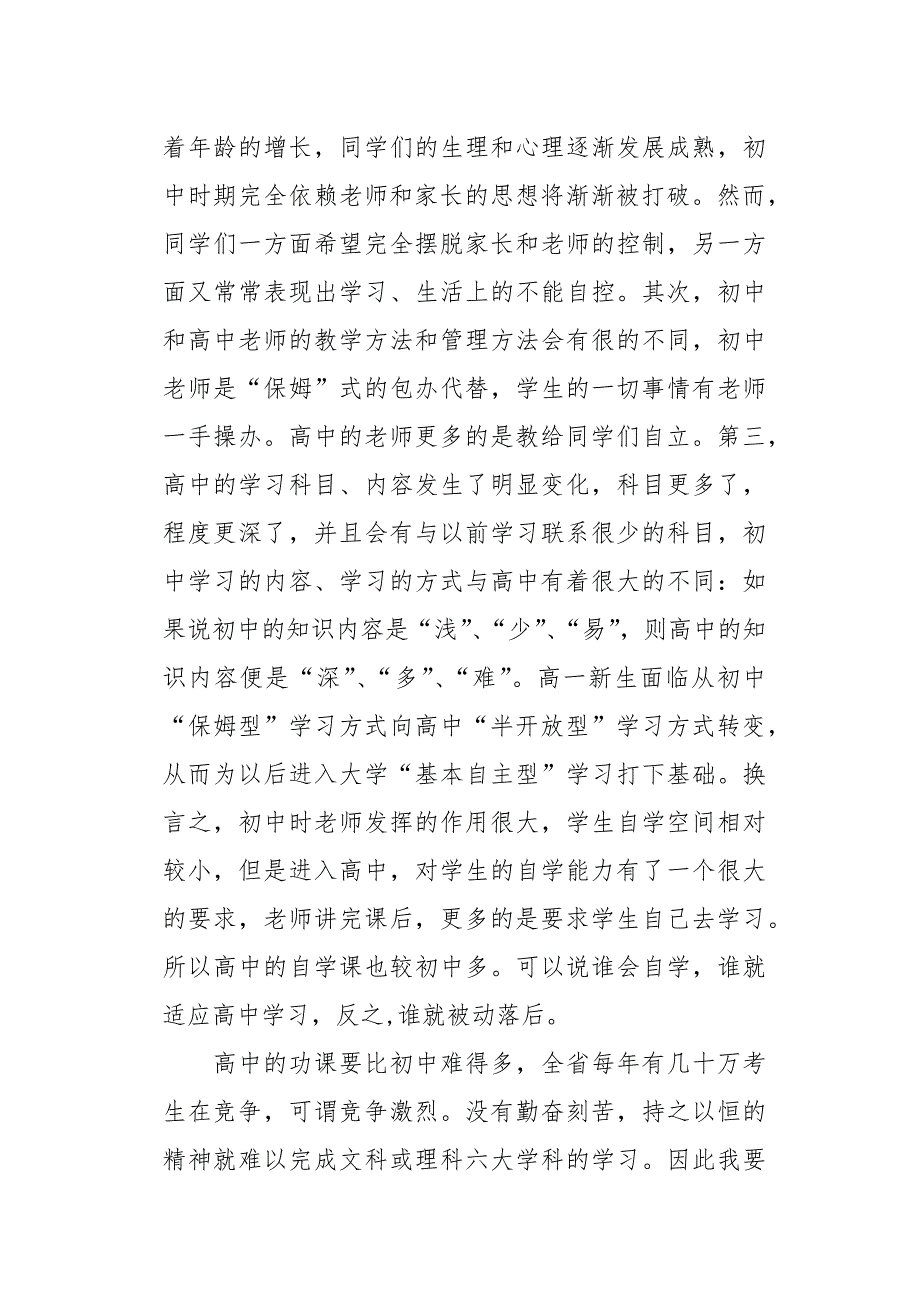 着年龄的增长，同学们的生理和心理逐渐发展成熟，初
中时期完全依赖老师和家长的思想将渐渐被打破。然而，
同学们一方面希望完全摆脱家长和老师的控制，另一方
面又常常表现出学习、生活上的不能自控。其次，初中
和高中老师的教学方法和管理方法会有很的不同，初中
老师是“保姆”式的包办代替，学生的一切事情有老师
一手操办。高中的老师更多的是教给同学们自立。第三，
高中的学习科目、内容发生了明显变化，科目更多了，
程度更深了，并且会有与以前学习联系很少的科目，初
中学习的内容、学习的方式与高中有着很大的不同：如
果说初中的知识内容是“浅”、“少”、“易”，则高中的知
识内容便是“深”、“多”、“难”。高一新生面临从初中
“保姆型”学习方式向高中“半开放型”学习方式转变，
从而为以后进入大学“基本自主型”学习打下基础。换
言之，初中时老师发挥的作用很大，学生自学空间相对
较小，但是进入高中，对学生的自学能力有了一个很大
的要求，老师讲完课后，更多的是要求学生自己去学习。
所以高中的自学课也较初中多。可以说谁会自学，谁就
适应高中学习，反之,谁就被动落后。
高中的功课要比初中难得多，全省每年有几十万考
生在竞争，可谓竞争激烈。没有勤奋刻苦，持之以恒的
精神就难以完成文科或理科六大学科的学习。因此我要